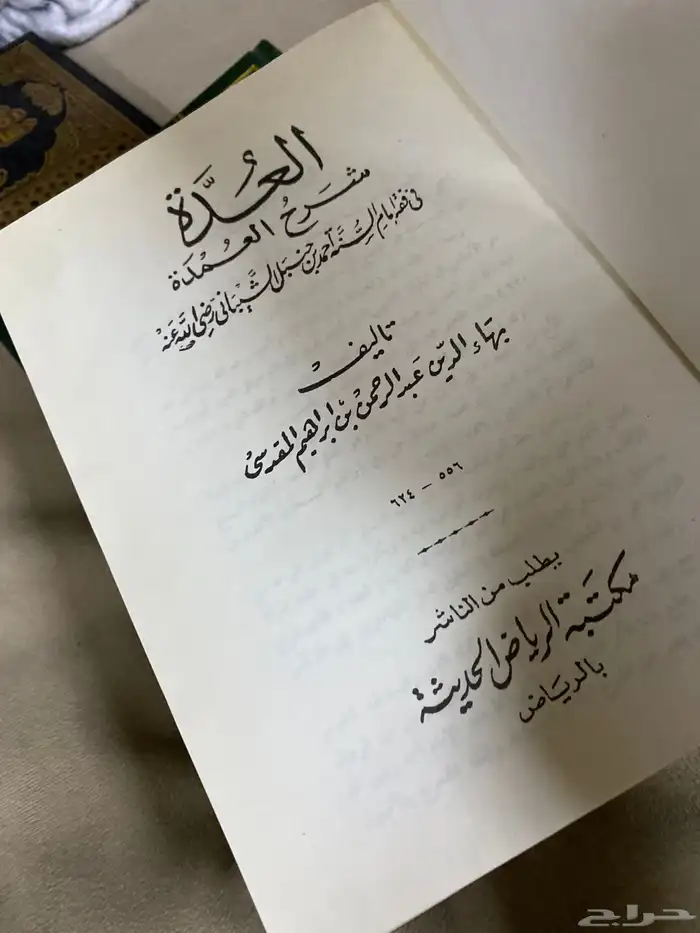 العُدَّة
شَرحُ العُمْدَة
في فقه إمام السُّنَّة أحمد بن حنبل الشَّيبَاني رَضِيَ اللهُ عَنْهُ
تأليف
بهاء الدين عبد الرحمن بن إبراهيم المقدسي
٥٥٦ – ٦٢٤
يطلب من الناشر
مكتبَة الرياض الحديثة
بالريَاض
حراج